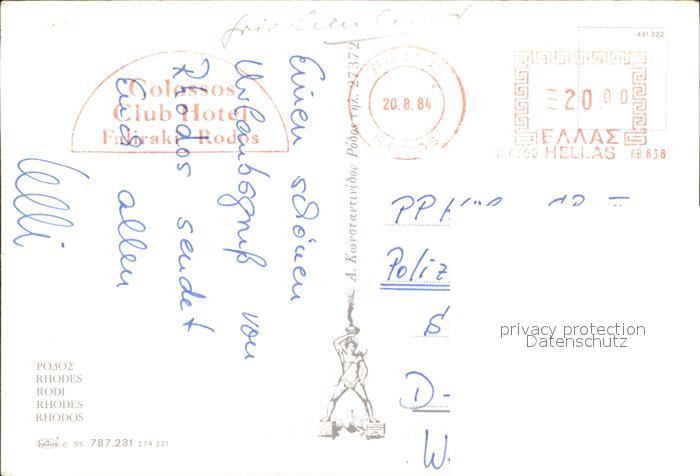 491 322
Colossos
Club Hotel
Faliraki Rodos
20.8.84
20 00
ΕΛΛΑΣ
HELLAS
Einen schönen
Urlaubsgruß von
Rhodos sendet
Euch allen
Α. Κωνσταντινίδου Ρόδος τηλ. 27372
Poliz
D-
privacy protection
Datenschutz
ΡΟΔΟΣ
RHODES
RODI
RHODES
RHODOS
© 55. 787.231 274 221